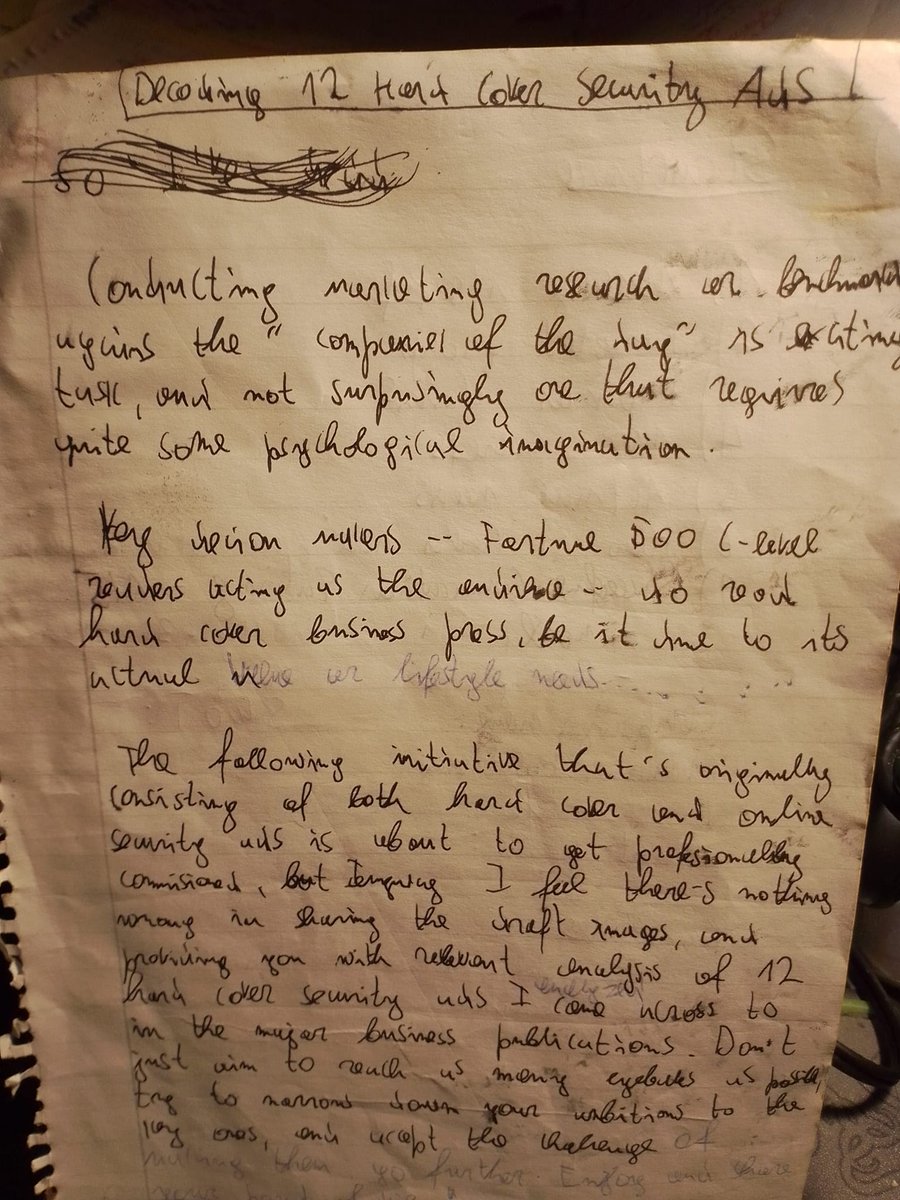 Decoding 12 Hard Cover Security Ads
so
Conducting marketing research or benchmark
agains the "companies of the day" is exciting
task, and not surprisingly one that requires
quite some psychological imagination.
Key decion makers -- Fortune 500 C-level
readers acting as the audience -- do read
hard cover business press, be it due to its
actual value or lifestyle needs
The following initiative that's originally
consisting of both hard cover and online
security ads is about to get professionally
commisioned, but I feel there's nothing
wrong in sharing the draft images, and
providing you with relevant analysis of 12
hard cover security ads I came across to
in the major business publications. Don't
just aim to reach as many eyeballs as possible,
try to narrow down your ambitions to the
key ones, and accept the challenge of
making them go further. Enjoy and share